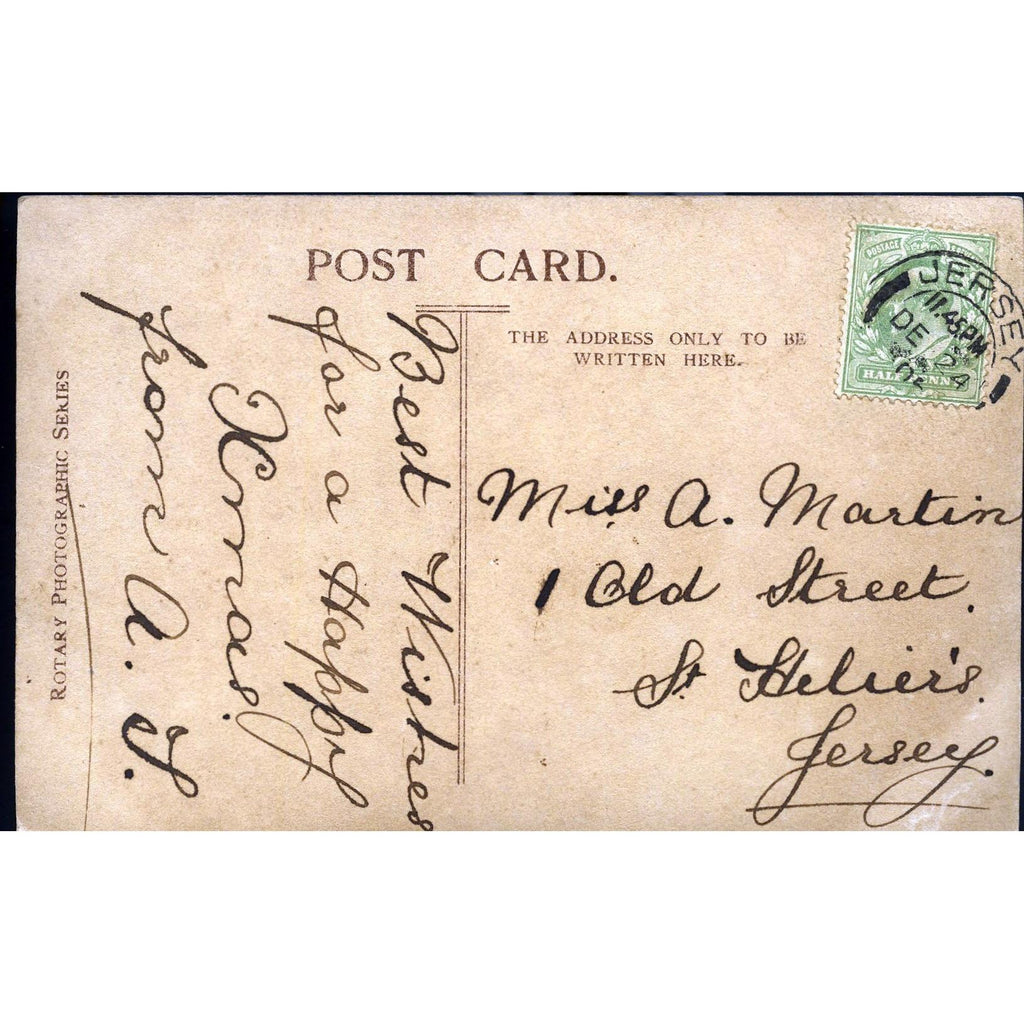 POST CARD.
THE ADDRESS ONLY TO BE
WRITTEN HERE.
POSTAGE
HALFPENNY
JERSEY
11.45PM
DE 24
Miss A. Martin
1 Old Street.
St Helier's.
Jersey.
Best Wishes
for a Happy
Xmas.
from A. J.
ROTARY PHOTOGRAPHIC SERIES